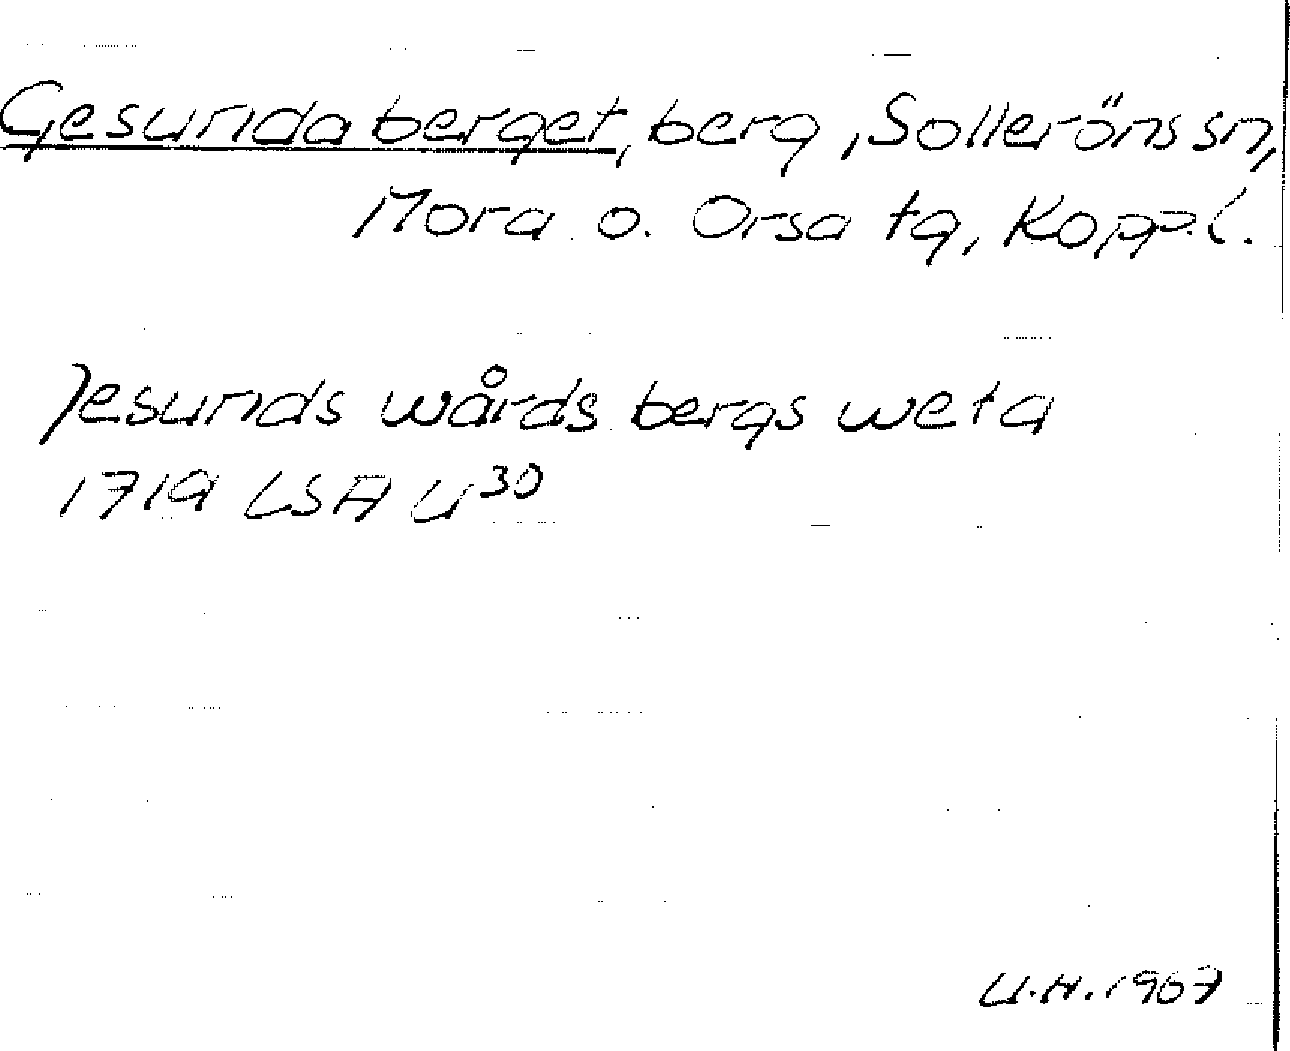 Gesundaberget, berg, Solleröns sn,
Mora o. Orsa tg, Kopp.l.
Jesunds wårds bergs weta
1719 LSA U30
U.H. 1967